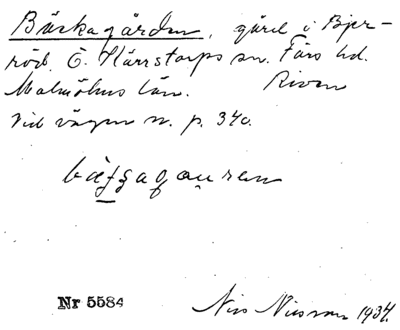 Bäckagården, gård i Bjer-
röd. Ö. Kärrstorps sn. Färs hd.
Malmöhus län. Riven
Vid vägen n. p. 340.
Nr 5584 Nils Nilsson 1934.